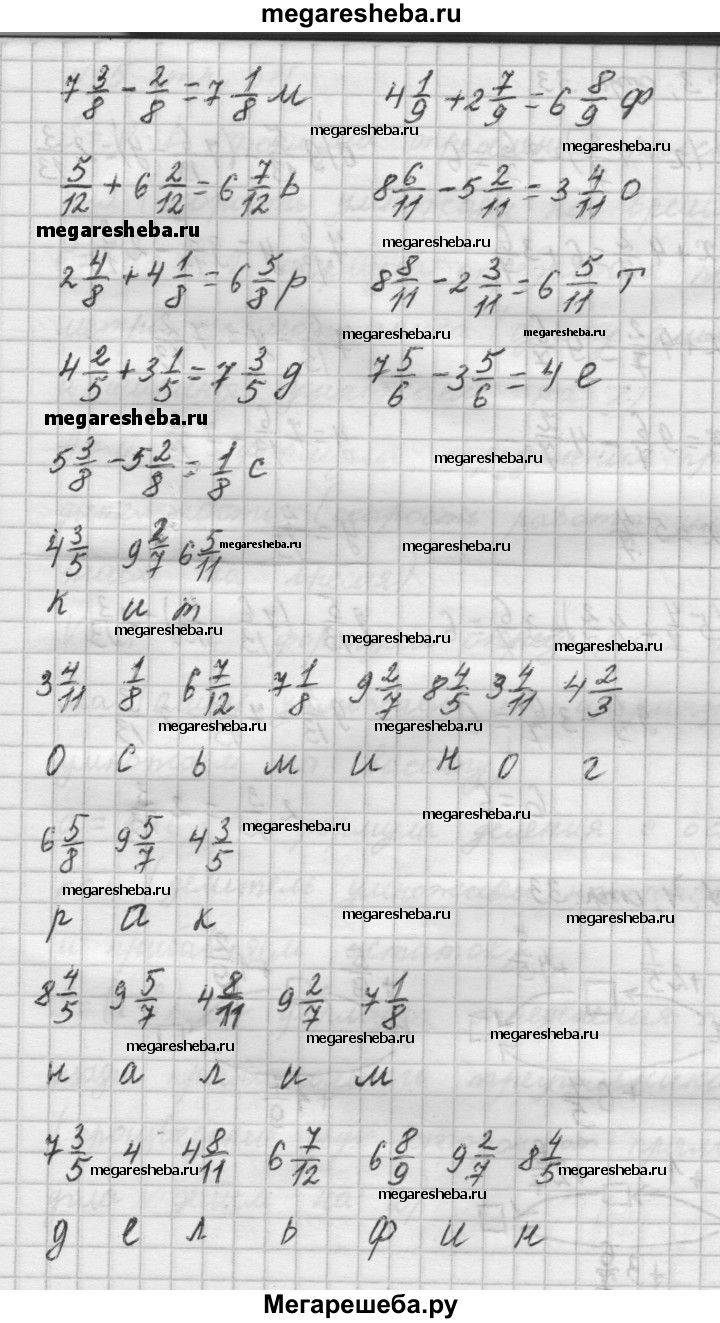 megaresheba.ru
7 3/8 - 2/8 = 7 1/8 м 4 1/9 + 2 7/9 = 6 8/9 ф
megaresheba.ru megaresheba.ru
5/12 + 6 2/12 = 6 7/12 ь 8 6/11 - 5 2/11 = 3 4/11 о
megaresheba.ru megaresheba.ru
2 4/8 + 4 1/8 = 6 5/8 р 8 8/11 - 2 3/11 = 6 5/11 т
megaresheba.ru megaresheba.ru
4 2/5 + 3 1/5 = 7 3/5 д 7 5/6 - 3 5/6 = 4 е
megaresheba.ru
5 3/8 - 5 2/8 = 1/8 с megaresheba.ru
4 3/5 9 2/7 6 5/11 megaresheba.ru megaresheba.ru
к и т
megaresheba.ru megaresheba.ru megaresheba.ru
3 4/11 1/8 6 7/12 7 1/8 9 2/7 8 4/5 3 4/11 4 2/3
megaresheba.ru megaresheba.ru
о с ь м и н о г
6 5/8 9 5/7 4 3/5 megaresheba.ru megaresheba.ru
megaresheba.ru
р а к megaresheba.ru megaresheba.ru
8 4/5 9 5/7 4 8/11 9 2/7 7 1/8
megaresheba.ru megaresheba.ru megaresheba.ru
н а л и м
7 3/5 4 4 8/11 6 7/12 6 8/9 9 2/7 8 4/5
megaresheba.ru megaresheba.ru megaresheba.ru
д е л ь ф и н
Мегарешеба.ру